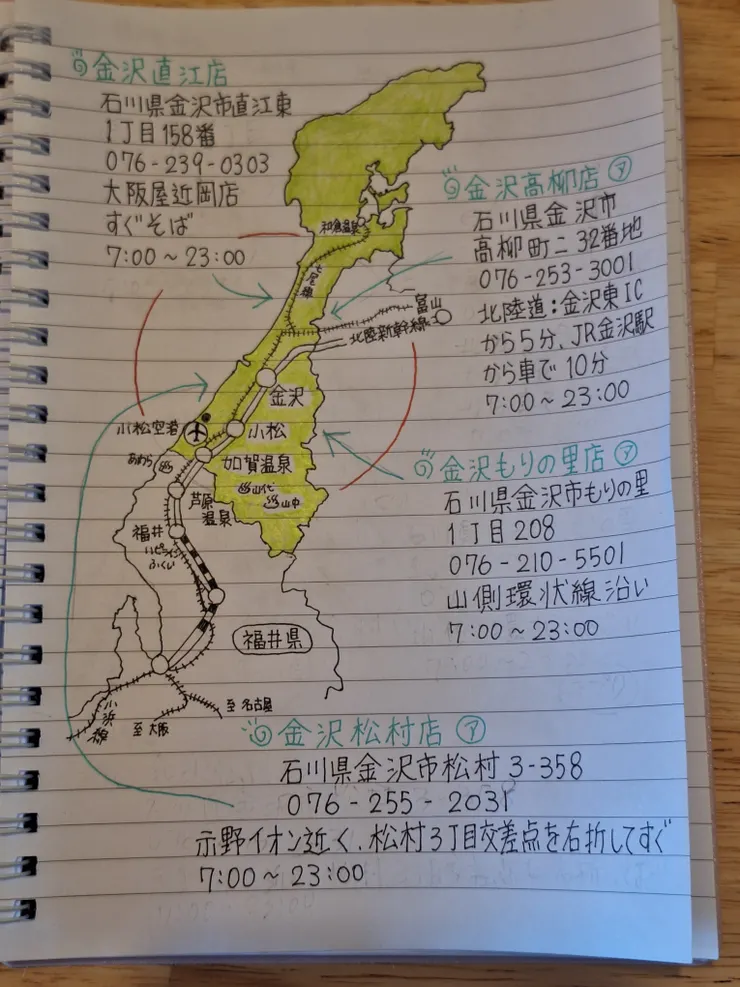 金沢直江店
石川県金沢市直江東
1丁目158番
076-239-0303
大阪屋近岡店
すぐそば
7:00～23:00
金沢高柳店 ㋐
石川県金沢市
高柳町ニ32番地
076-253-3001
北陸道：金沢東IC
から5分、JR金沢駅
から車で10分
7:00～23:00
和倉温泉
七尾線
富山
北陸新幹線
金沢
小松空港
小松
加賀温泉
山代
山中
あわら
芦原
温泉
福井
ハピライン
ふくい
福井県
小浜線
至大阪
至名古屋
金沢もりの里店 ㋐
石川県金沢市もりの里
1丁目208
076-210-5501
山側環状線沿い
7:00～23:00
金沢松村店 ㋐
石川県金沢市松村3-358
076-255-2031
示野イオン近く、松村3丁目交差点を右折してすぐ
7:00～23:00